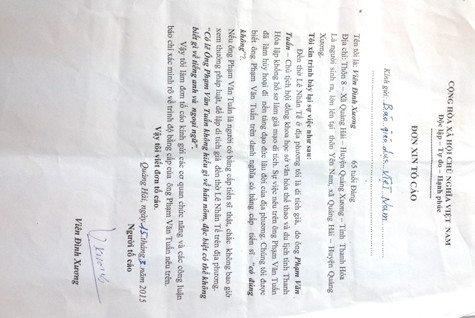 CỘNG HÒA XÃ HỘI CHỦ NGHĨA VIỆT NAM
Độc lập – Tự do – Hạnh phúc
ĐƠN XIN TỐ CÁO
Kính gửi: Báo giáo dục Việt Nam
Tên tôi là: Viên Đình Xương 65 tuổi Đảng
Địa chỉ: Thôn 8 – Xã Quảng Hải – Huyện Quảng Xương – Tỉnh Thanh Hóa
Là người sinh ra, lớn lên tại thôn Yên Nam, xã Quảng Hải – Huyện Quảng
Xương.
Tôi xin trình bày lại sự việc như sau:
Đền thờ Lê Nhân Tế ở địa phương tôi là di tích giả, do ông Phạm Văn
Tuấn – Chủ tịch hội đồng khoa học, sở văn hóa thể thao và du lịch tỉnh Thanh
Hóa lập không hồ sơ làm giả mạo di tích. Sự việc nêu trên ông Phạm Văn Tuấn
đã làm hủy hoại đi nền tảng đạo đức lâu đời của địa phương. Chúng tôi được
biết ông Phạm Văn Tuấn trên danh nghĩa có bằng cấp tiến sĩ "có đúng
không".
Nếu ông Phạm Văn Tuấn là người có bằng cấp tiến sĩ thật, chắc không bao giờ
xem thường pháp luật, để lập di tích giả đền thờ Lê Nhân Tế trên địa phương.
"Có lẽ Ông Phạm Văn Tuấn không hiểu gì về hán nôm, đặc biệt có thể không
biết gì về tiếng anh và ngoại ngữ".
Do vậy tôi làm đơn tố cáo kính gửi các cơ quan chức năng và các công luận
báo chí xác minh rõ về trình độ bằng cấp của ông Phạm Văn Tuấn nêu trên.
Vậy tôi viết đơn tố cáo
Quảng Hải, ngày 15 tháng 3 năm 2015
Người tố cáo
Viên Đình Xương